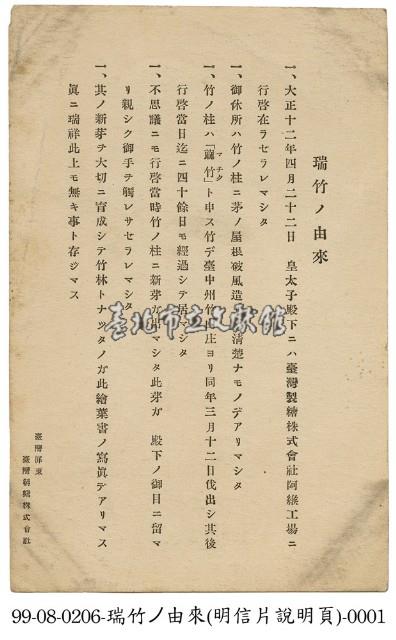 瑞竹ノ由來
一、大正十二年四月二十二日　皇太子殿下ニハ臺灣製糖株式會社阿緱工場ニ
行啓在ラセラレマシタ
一、御休所ハ竹ノ柱ニ茅ノ屋根破風造清楚ナモノデアリマシタ
マチク
一、竹ノ柱ハ「蔴竹」ト申ス竹デ臺中州竹庄ヨリ同年三月十二日伐出シ其後
行啓當日迄ニ四十餘日モ經過シテ居シタ
一、不思議ニモ行啓當時竹ノ柱ニ新芽ガ出マシタ此芽ガ　殿下ノ御目ニ留マ
リ親シク御手ヲ觸レサセラレマシタ
一、其ノ新芽ヲ大切ニ育成シテ竹林トナツタノガ此繪葉書ノ寫眞デアリマス
眞ニ瑞祥此上モ無キ事ト存ジマス
臺灣屏東
臺灣製糖株式會社
臺北市立文獻館
99-08-0206-瑞竹ノ由來(明信片說明頁)-0001